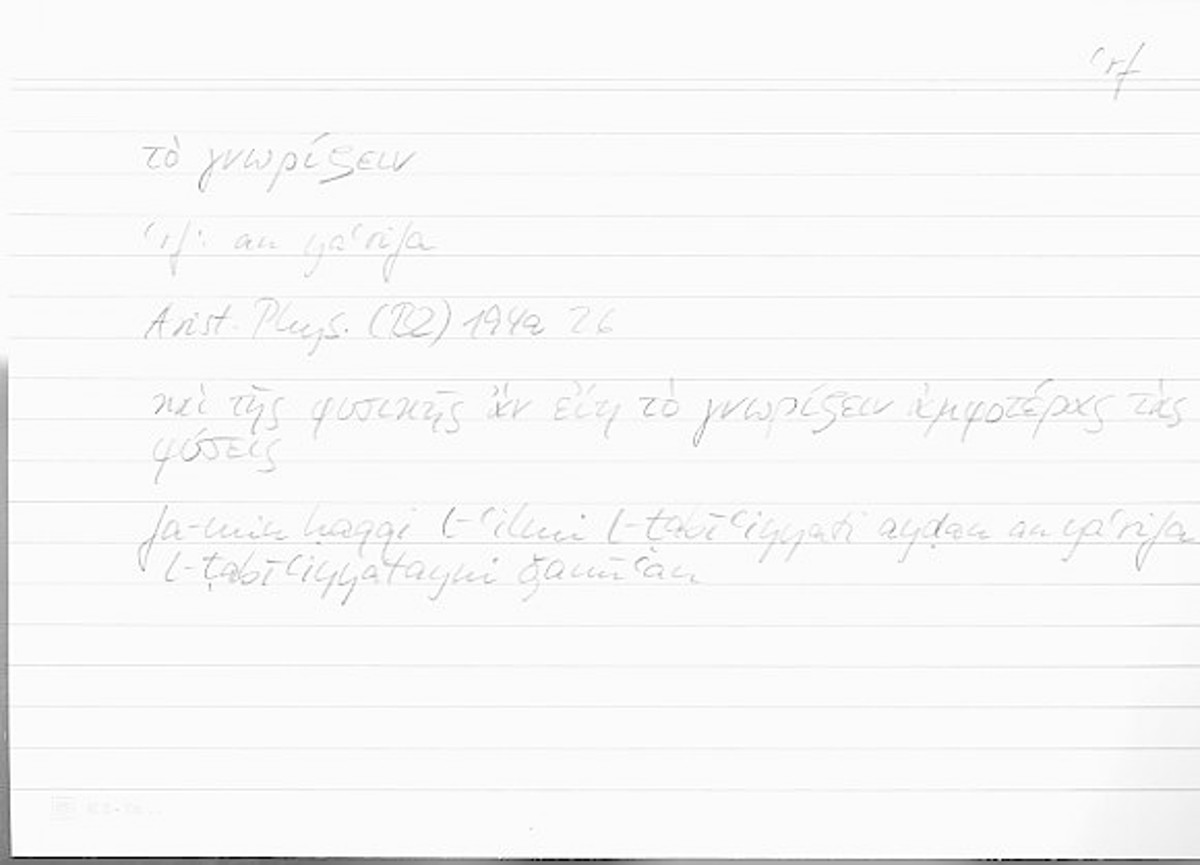 ʿrf
τὸ γνωρίζειν
ʿrf: an yaʿrifa
Arist. Phys. (B2) 194a 26
καὶ τῆς φυσικῆς ἂν εἴη τὸ γνωρίζειν ἀμφοτέρας τὰς
φύσεις
fa-min ḥaqqi l-ʿilmi l-ṭabīʿiyyati ayḍan an yaʿrifa
l-ṭabīʿiyyatayni ǧamīʿan